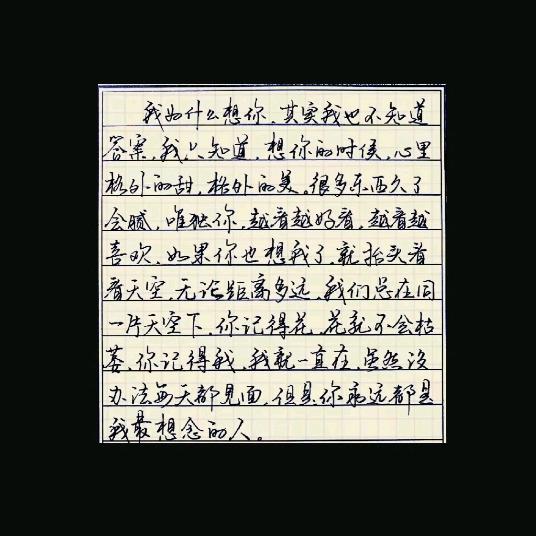 我为什么想你，其实我也不知道
答案，我只知道，想你的时候，心里
格外的甜，格外的美。很多东西久了
会腻，唯独你，越看越好看，越看越
喜欢，如果你也想我了，就抬头看
看天空，无论距离多远，我们总在同
一片天空下，你记得花，花就不会枯
萎，你记得我，我就一直在，虽然没
办法每天都见面，但是，你永远都是
我最想念的人。